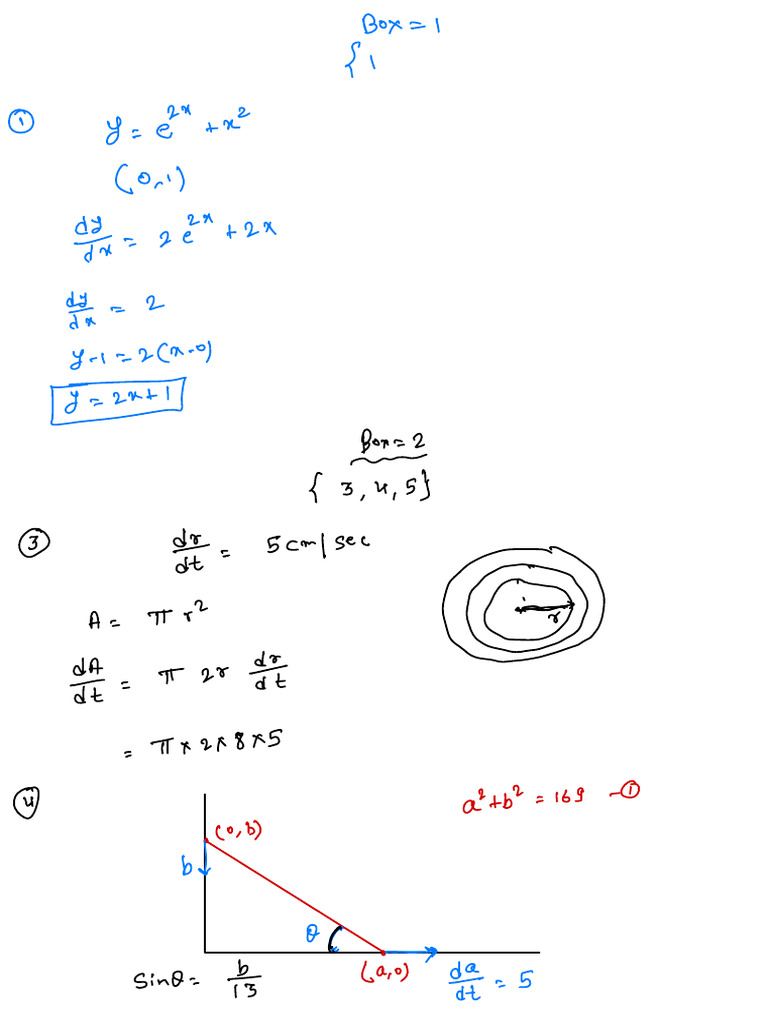 Box = 1
{ 1
① y = e^{2x} + x^2
(0,1)
dy/dx = 2e^{2x} + 2x
dy/dx = 2
y-1 = 2(x-0)
y = 2x+1
Box = 2
{ 3, 4, 5}
③ dr/dt = 5 cm/sec
A = πr^2
r
dA/dt = π 2r dr/dt
= π×2×8×5
④ a^2+b^2 = 169 -①
(0,b)
b
θ
(a,0)
sinθ = b/13
da/dt = 5